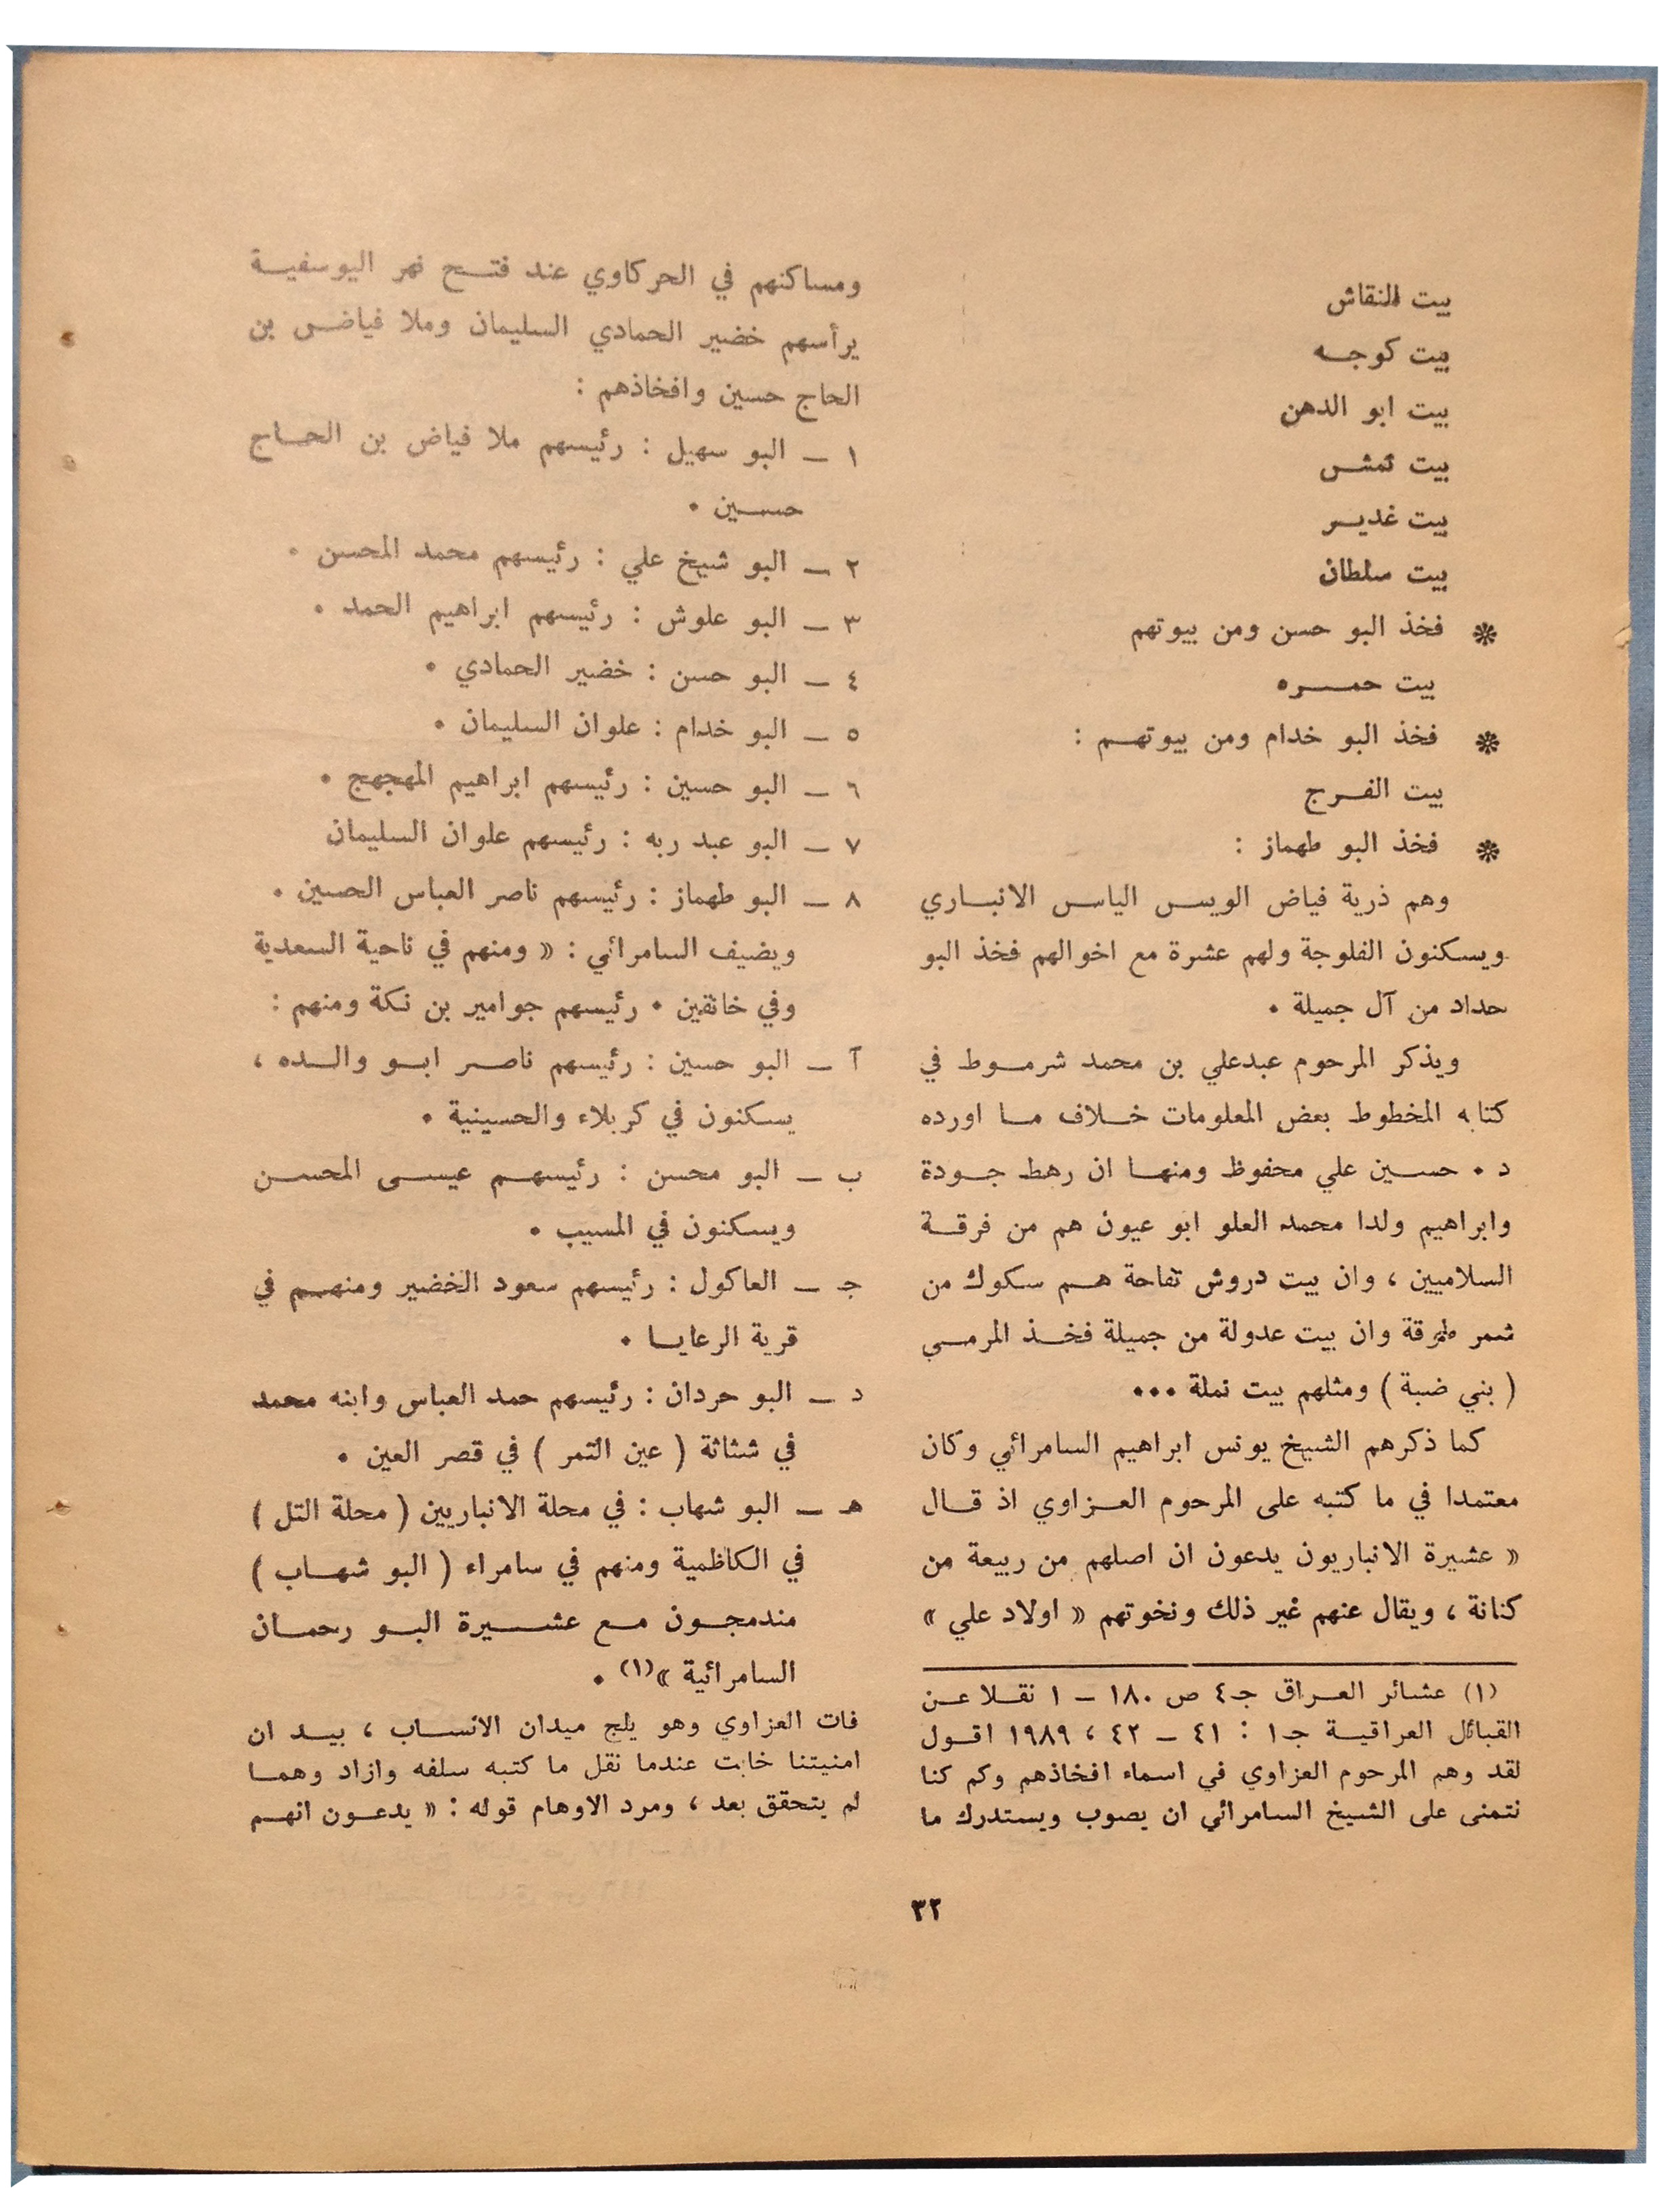 بيت النقاش
بيت كوجـه
بيت ابو الدهن
بيت نمش
بيت غدير
بيت سلطان
* فخذ البو حسن ومن بيوتهم
بيت حمره
* فخذ البو خدام ومن بيوتهم :
بيت الفرج
* فخذ البو طهماز :
وهم ذرية فياض الويس الياس الانباري
ويسكنون الفلوجة ولهم عشرة مع اخوالهم فخذ البو
حداد من آل جميلة .
ويذكر المرحوم عبدعلي بن محمد شرموط في
كتابه المخطوط بعض المعلومات خلاف ما اورده
د . حسين علي محفوظ ومنها ان رهط جودة
وابراهيم ولدا محمد العلو ابو عيون هم من فرقة
السلاميين ، وان بيت دروش تفاحة هم سكوك من
شمر طوقة وان بيت عدولة من جميلة فخذ المرمي
( بني ضبة ) ومثلهم بيت نملة ...
كما ذكرهم الشيخ يونس ابراهيم السامرائي وكان
معتمدا في ما كتبه على المرحوم العزاوي اذ قال
« عشيرة الانباريون يدعون ان اصلهم من ربيعة من
كنانة ، ويقال عنهم غير ذلك ونخوتهم « اولاد علي »
ومساكنهم في الحركاوي عند فتح نهر اليوسفية
يرأسهم خضير الحمادي السليمان وملا فياض بن
الحاج حسين وافخاذهم :
١ – البو سهيل : رئيسهم ملا فياض بن الحاج
حسين .
٢ – البو شيخ علي : رئيسهم محمد المحسن .
٣ – البو علوش : رئيسهم ابراهيم الحمد .
٤ – البو حسن : خضير الحمادي .
٥ – البو خدام : علوان السليمان .
٦ – البو حسين : رئيسهم ابراهيم المهجهج .
٧ – البو عبد ربه : رئيسهم علوان السليمان
٨ – البو طهماز : رئيسهم ناصر العباس الحسين .
ويضيف السامرائي : « ومنهم في ناحية السعدية
وفي خانقين . رئيسهم جوامير بن نكة ومنهم :
آ – البو حسين : رئيسهم ناصر ابو والده ،
يسكنون في كربلاء والحسينية .
ب – البو محسن : رئيسهم عيسى المحسن
ويسكنون في المسيب .
جـ – العاكول : رئيسهم سعود الخضير ومنهم في
قرية الرعايا .
د – البو حردان : رئيسهم حمد العباس وابنه محمد
في شثاثة ( عين التمر ) في قصر العين .
هـ – البو شهاب : في محلة الانباريين ( محلة التل )
في الكاظمية ومنهم في سامراء ( البو شهاب )
مندمجون مع عشيرة البو رحمان
السامرائية »(١) .
(١) عشائر العراق جـ٤ ص ١٨٠ – ١ نقلا عن
القبائل العراقية جـ١ : ٤١ – ٤٢ ، ١٩٨٩ اقول
لقد وهم المرحوم العزاوي في اسماء افخاذهم وكم كنا
نتمنى على الشيخ السامرائي ان يصوب ويستدرك ما
فات العزاوي وهو يلج ميدان الانساب ، بيد ان
امنيتنا خابت عندما نقل ما كتبه سلفه وازاد وهما
لم يتحقق بعد ، ومرد الاوهام قوله : « يدعون انهم
٣٢